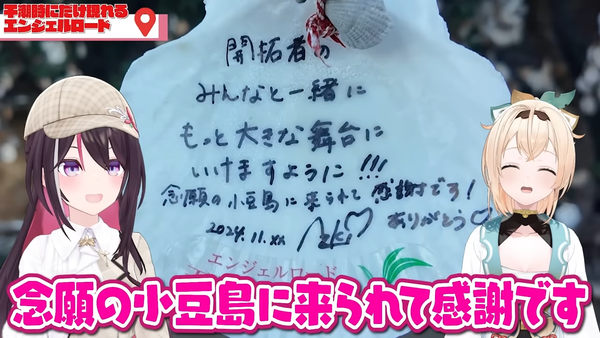 干潮時にだけ現れる
エンジェルロード
開拓者の
みんなと一緒に
もっと大きな舞台に
いけますように!!!
念願の小豆島に来られて感謝です!
2024.11.xx
ありがとう♡
エンジェルロード
念願の小豆島に来られて感謝です